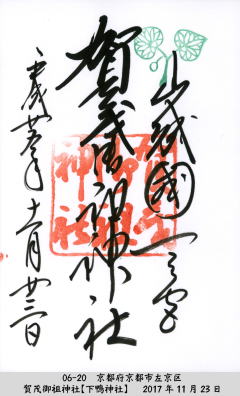 山城國一之宮
賀茂御祖神社
平成廿九年十一月廿三日
賀茂御祖神社
06-20 京都府京都市左京区
賀茂御祖神社【下鴨神社】 2017年11月23日